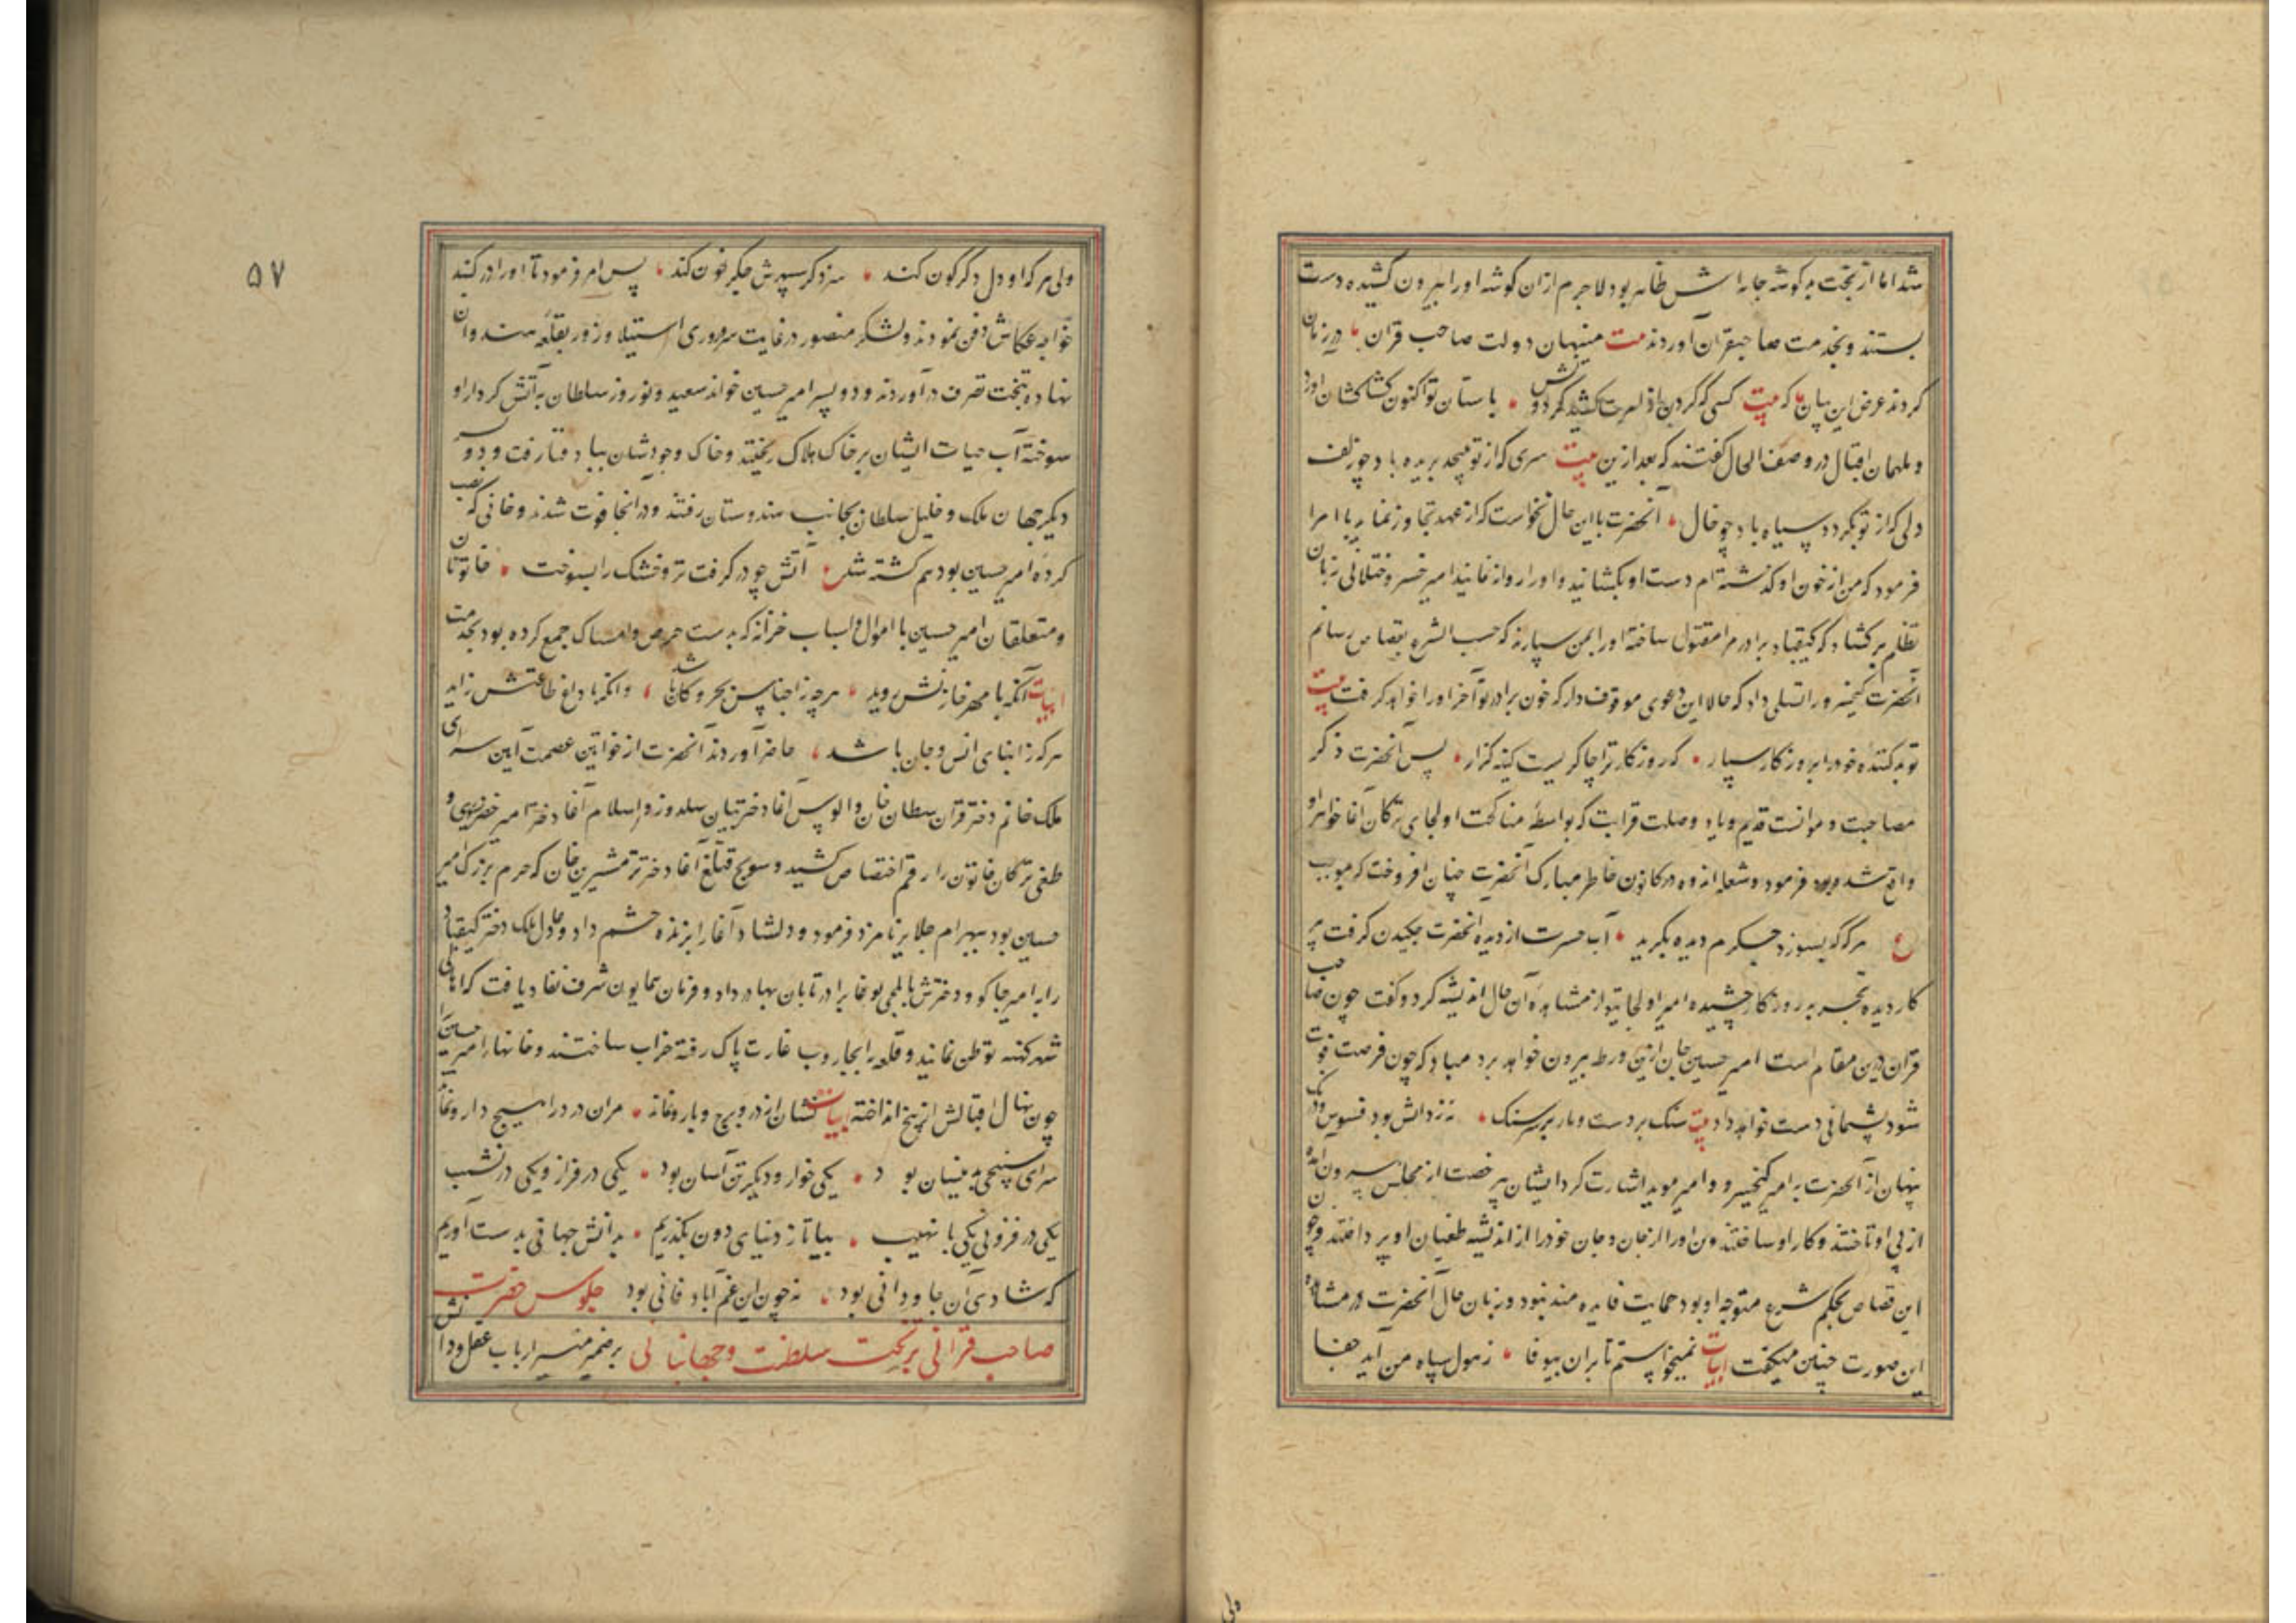 شد اما از بخت بد گوشه جامه اش ظاهر بود لاجرم ازان کوشه اورا بیرون کشیده دست
بستند و بخدمت صاحبقران آوردند بیت منهیان دولت صاحب قران در زمان
کردند عرض این بیان که بیت کسی که گردن از امرت کشید گردونش باستان تو اکنون کشان کشان اورد
و ملهمان اقبال در وصف الحال گفتند که بعد ازین بیت سری که از تو بپیچد بریده باد چو زلف
دلی که از تو بگردد سیاه باد چو خال آنحضرت با این حال نخواست که از عهد تجاوز نماید با امرا
فرمود که من از خون او گذشته ام دست او بکشانید و اورا روانه نمایید امیر کیخسرو ختلانی زبان
تظلم برکشاد که کیقباد برادر مرا مقتول ساخته اورا بمن سپارند که حسب الشرع بقصاص رسانم
آنحضرت کیخسرو را تسلی داد که حالا این دعوی موقوف دار که خون برادر تو آخر اورا خواهد گرفت بیت
تو بد کننده خود را بروزکار سپار که روزکار ترا چاکریست کینه گزار پس آنحضرت ذکر
مصاحبت و موانست قدیم و یاد وصلت قرابت که بواسطه مناکحت اولجای ترکان آغا خواهر او
واقع شده بود فرمود و شعله اندوه در کانون خاطر مبارک آنحضرت چنان افروخت که بموجب
ع هرگه که بسوزد جگرم دیده بگرید آب حسرت از دیده آنحضرت چکیدن گرفت پیر
کار دیده تجربه روزکار چشیده امیر اولجایتو از مشاهده آن حال اندیشه کرد و گفت چون صاحب
قران درین مقام است امیر حسین جان ازین ورطه بیرون خواهد برد مبادا که چون فرصت فوت
شود پشیمانی دست خواهد داد بیت سنک بر دست و مار بر سر سنک نه ز دانش بود فسوس و درنک
پنهان از آنحضرت به امیر کیخسرو و امیر موید اشارت کرد ایشان بی رخصت از مجلس بیرون آمده
از پی او تاختند و کار او ساختند و تن اورا از جان و جان خود را از اندیشه طغیان او پرداختند و چون
این قصاص بحکم شرع متوجه او بود حمایت فایده مند نبود و زبان حال آنحضرت در مشاهده
این صورت چنین میگفت ابیات نمیخواستم تا بران بیوفا ز هول سپاه من آید جفا
ولی
ولی هر که او دل دگرگون کند سزد گر سپهرش جگر خون کند پس امر فرمود تا اورا در گنبد
خواجه عکاش دفن نمودند و لشکر منصور در غایت سروری استیلا و زور بقلعه هندوان
نهاده بتخت تصرف درآوردند و دو پسر امیر حسین خواند سعید و نوروز سلطان بآتش کردار او
سوخته آب حیات ایشان بر خاک هلاک ریختند و خاک وجودشان بباد فنا رفت و دو پسر
دیگر جهان ملک و خلیل سلطان بجانب هندوستان رفتند و در آنجا فوت شدند و خانی که نصب
کرده امیر حسین بود هم کشته شد ع آتش چو در گرفت تر و خشک را بسوخت خاتونان
و متعلقان امیر حسین با اموال و اسباب خزانه که بدست حرص و امساک جمع کرده بود بخدمت
ابیات آنکه با مهر خازنش روید هرچه ز اجناس بحر و کان باشد وانکه با داغ طاعتش زاید
هرکه ز ابنای انس و جان باشد حاضر آوردند آنحضرت از خواتین عصمت آیین سرای
ملک خانم دختر قزان سلطان خان و الوس آغا دختر بیان سلدوز و اسلام آغا دختر امیر خضر یسوری و
طغی ترکان خاتون را رقم اختصاص کشید و سونج قتلغ آغا دختر ترمشیرین خان که حرم بزرگ امیر
حسین بود ببهرام جلایر نامزد فرمود و دلشاد آغا را بزنده حشم داد و عادل ملک دختر کیقباد
را به امیر جاکو و دخترش با یلچی بوغا برادر تابان بهادر داد و فرمان همایون شرف نفاذ یافت که اهالی
شهر کهنه توطن نمایند و قلعه را بجاروب غارت پاک رفته خراب ساختند و خانهای امیر حسین را
چون نهال اقبالش از بیخ انداخته ابیات نشان از در و برج و بارو نماند مران در درا هیچ دارو نماند
سرای سپنجی بدینسان بود یکی خوار و دیگر تن آسان بود یکی در فراز و یکی در نشیب
یکی در فزونی یکی با نهیب بیا تا ز دنیای دون بگذریم بدانش جهانی بدست آوریم
که شادی آن جاودانی بود نه چون این غم آباد فانی بود جلوس حضرت
صاحب قرانی بر تخت سلطنت و جهانبانی بر ضمیر منیر ارباب عقل و دانش
۵۷